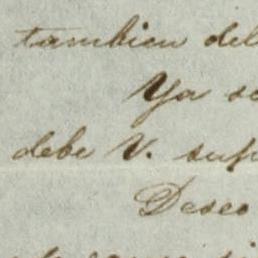 tambien del
Ya se
debe V. sup
Deseo